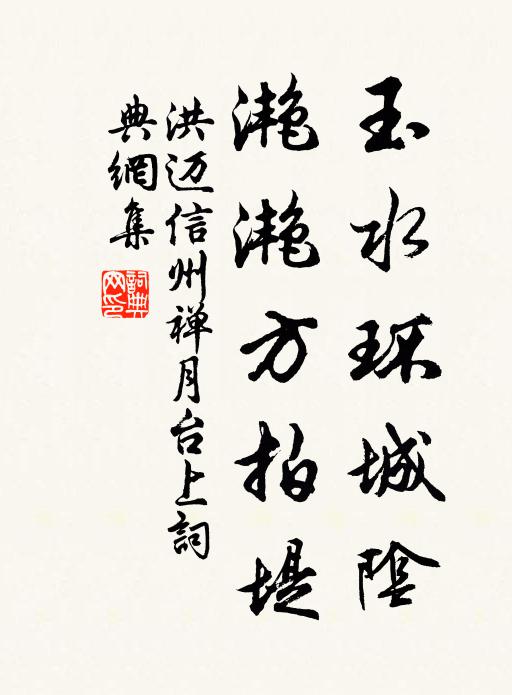 玉水环城陰
滟滟方拍堤
洪迈信州禅月台上詞
典網集
詞典网印